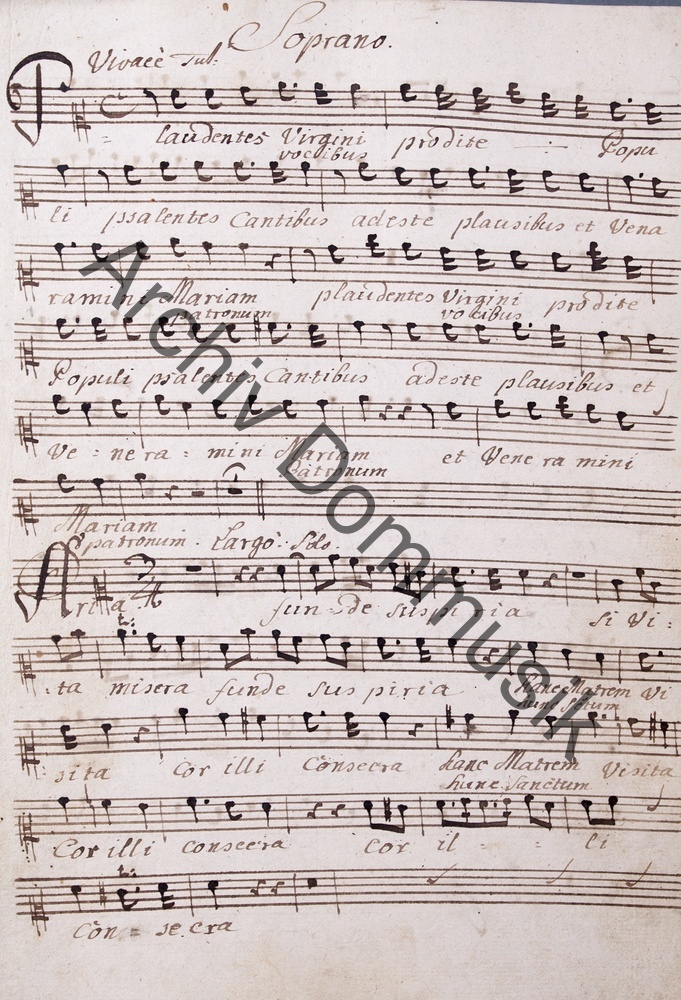 Soprano.
Vivacè Tutti
Plaudentes Virgini prodite Popu
vocibus
li psalentes Cantibus adeste plausibus et Vena
ramini Mariam plaudentes Virgini prodite
patronum vocibus
Populi psalentes Cantibus adeste plausibus et
Ve = ne ra = mini Mariam et Vene ra mini
Patronum
Mariam
patronum. Largo. Solo.
Aria fun = de suspiria si Vi =
= ta misera funde suspiria hanc Matrem Vi
hunc
sita Cor illi Consecra hanc Matrem Visita
hunc Sanctum
Cor illi consecra Cor il = = li
Con = se cra
Archiv Dommusik